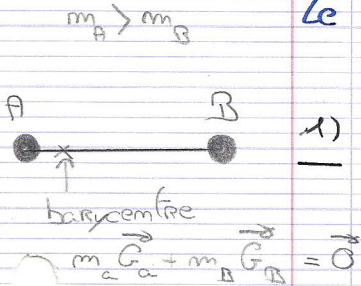 m_A > m_B
Le
A B
1)
barycentre
m_a \vec{G_a} + m_B \vec{G_B} = \vec{0}